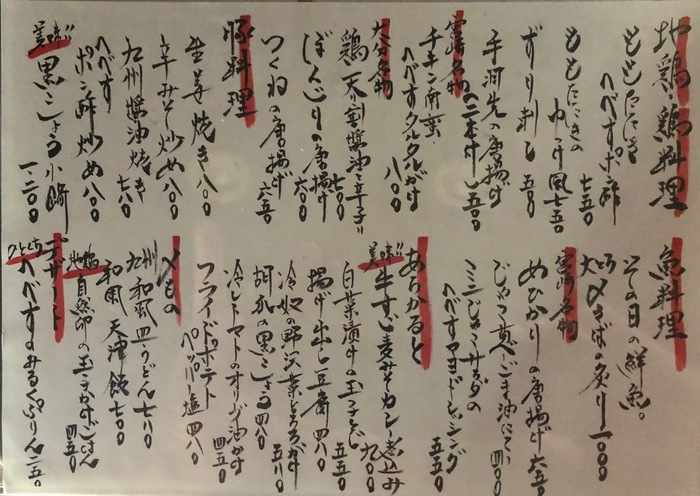 地鶏・鶏料理
ももたたき
へべすポン酢
七五〇
ももたたきの
ユッケ風七五〇
ずり刺し 五〇〇
手羽先の唐揚げ
二本付 五〇〇
宮崎名物
チキン南蛮
へべすタルタルがけ
八〇〇
大分名物
鶏天 割醤油と辛子
七〇〇
ぼんじりの唐揚げ
六〇〇
つくねの唐揚げ 六五〇
豚料理
生姜焼き 八〇〇
辛みそ炒め 八〇〇
九州醤油焼き
七八〇
へべす
ポン酢炒め 八〇〇
美味!!
黒こしょう小鍋
一、二〇〇
魚料理
その日の鮮魚。
大分〆さばの炙り 一〇〇〇
宮崎名物
めひかりの唐揚げ 六五〇
じゃこ葉 ごま油にて
四〇〇
ミニじゃこサラダの
へべすマヨドレッシング
五五〇
あらかると
美味!!
牛すじ麦みそカレー煮込み
九〇〇
白菜漬けの玉子とじ
五五〇
揚げ出し豆腐 四八〇
冷奴の野沢菜とろろがけ
五八〇
胡瓜の黒こしょう 四八〇
冷しトマトのオリーブ油がけ
四五〇
フライドポテト
ペッパー塩 四八〇
〆もの
九州和風皿うどん 七八〇
和風天津飯 七〇〇
自然卵の玉子かけごはん
四五〇
デザート
ひとくち
へべすのみるくぷりん 二五〇